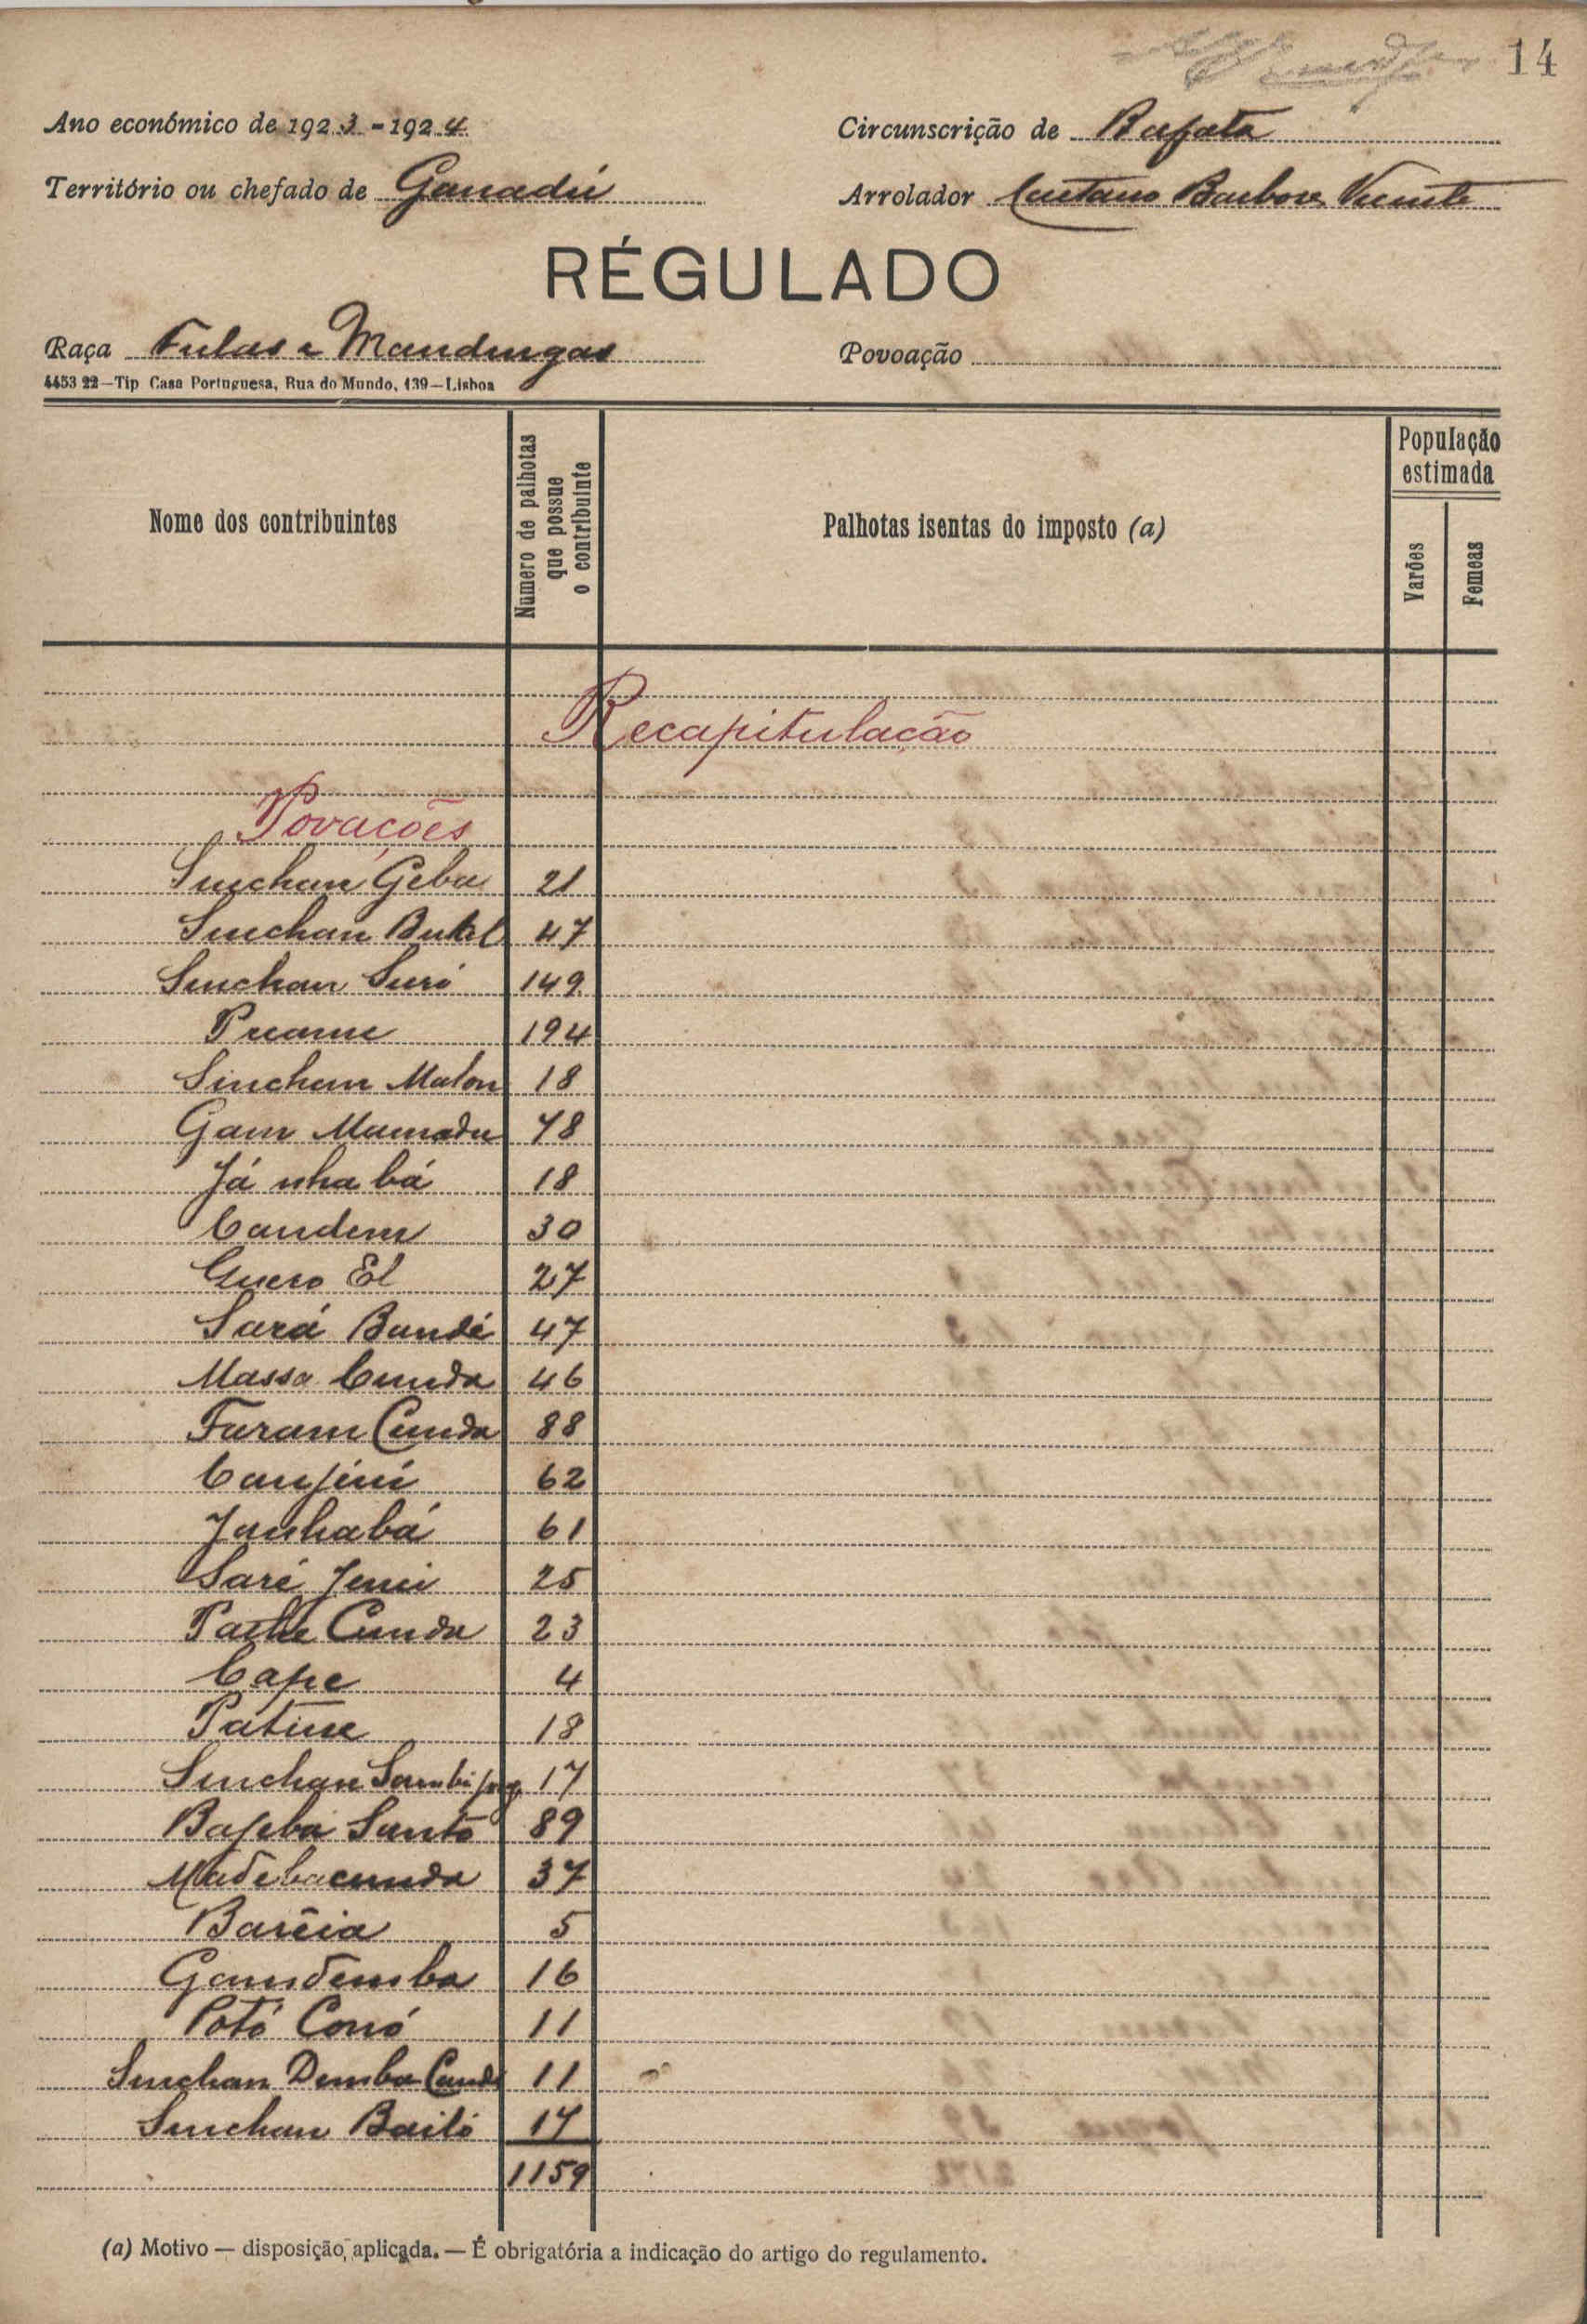 14
Ano económico de 1923-1924
Circunscrição de Bafata
Território ou chefado de Ganadú
Arrolador Caetano Barbosa Vicente
RÉGULADO
Raça Fulas e Mandingas
Povoação
4453 22—Tip Casa Portuguesa, Rua do Mundo, 139—Lisboa
Nome dos contribuintes
Número de palhotas que possue o contribuinte
Palhotas isentas do imposto (a)
População estimada
Varões
Femeas
Recapitulação
Povações
Sinchan Geba 21
Sinchan Butel 47
Sinchan Suri 149
Preame 194
Sinchan Malon 18
Gam Mamadu 78
Já nha bá 18
Candem 30
Guero El 27
Sará Bandé 47
Massa Cunda 46
Faram Cunda 88
Canjini 62
Janhabá 61
Saré Jenei 25
Pathe Cunda 23
Cape 4
Patine 18
Sinchan Sambi 17
Bajeba Santó 89
Madebacunda 37
Barêia 5
Gamdemba 16
Potó Conó 11
Sinchan Demba Cande 11
Sinchan Bailó 17
1159
(a) Motivo — disposição, aplicada. — É obrigatória a indicação do artigo do regulamento.